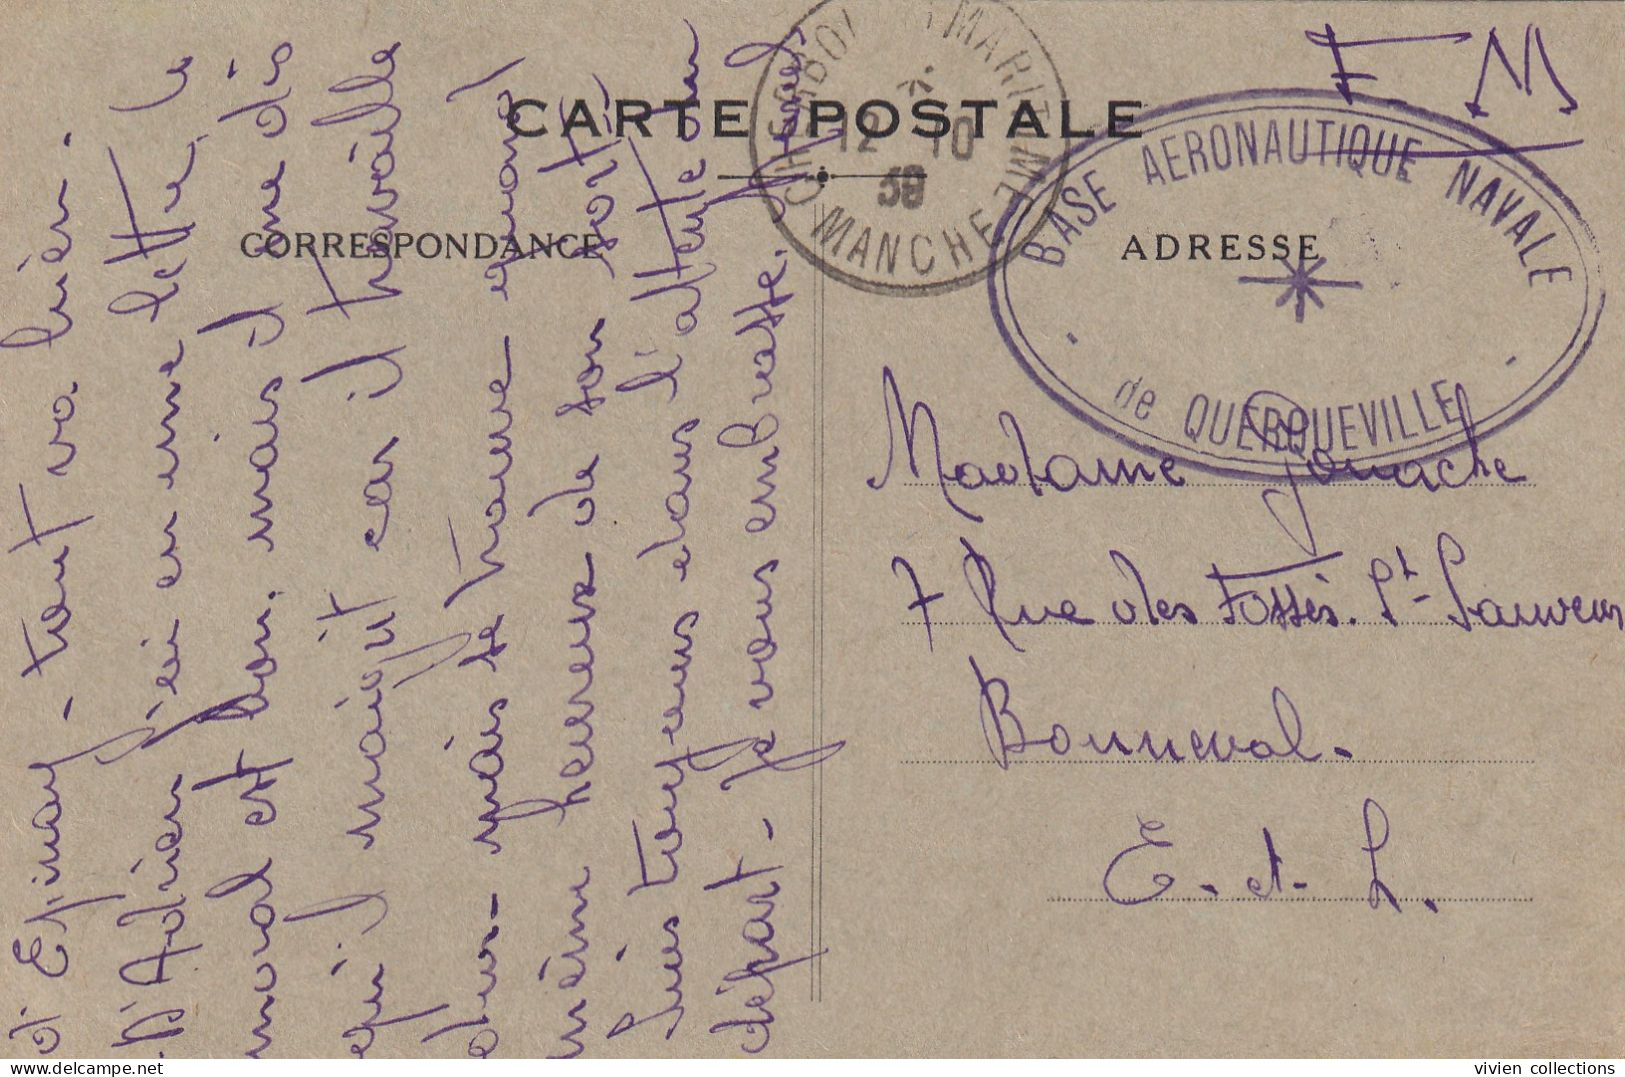 F M
CARTE POSTALE
CHERBOURG MARITIME
12 10
39
MANCHE
BASE AERONAUTIQUE NAVALE
de QUERQUEVILLE
CORRESPONDANCE
ADRESSE
d'Epinay - tout va bien.
D'Adrien j'ai eu une lettre, le
moral est bon, mais il me dis
qu'il maigrit car il travaille
dur - mais se trouve quand
même heureux de son sort.
Suis toujours dans l'attente du
départ - Je vous embrasse.
Madame Gouache
7 Rue des Fossés. St Sauveur
Bonneval -
E. et. L.
vivien collections